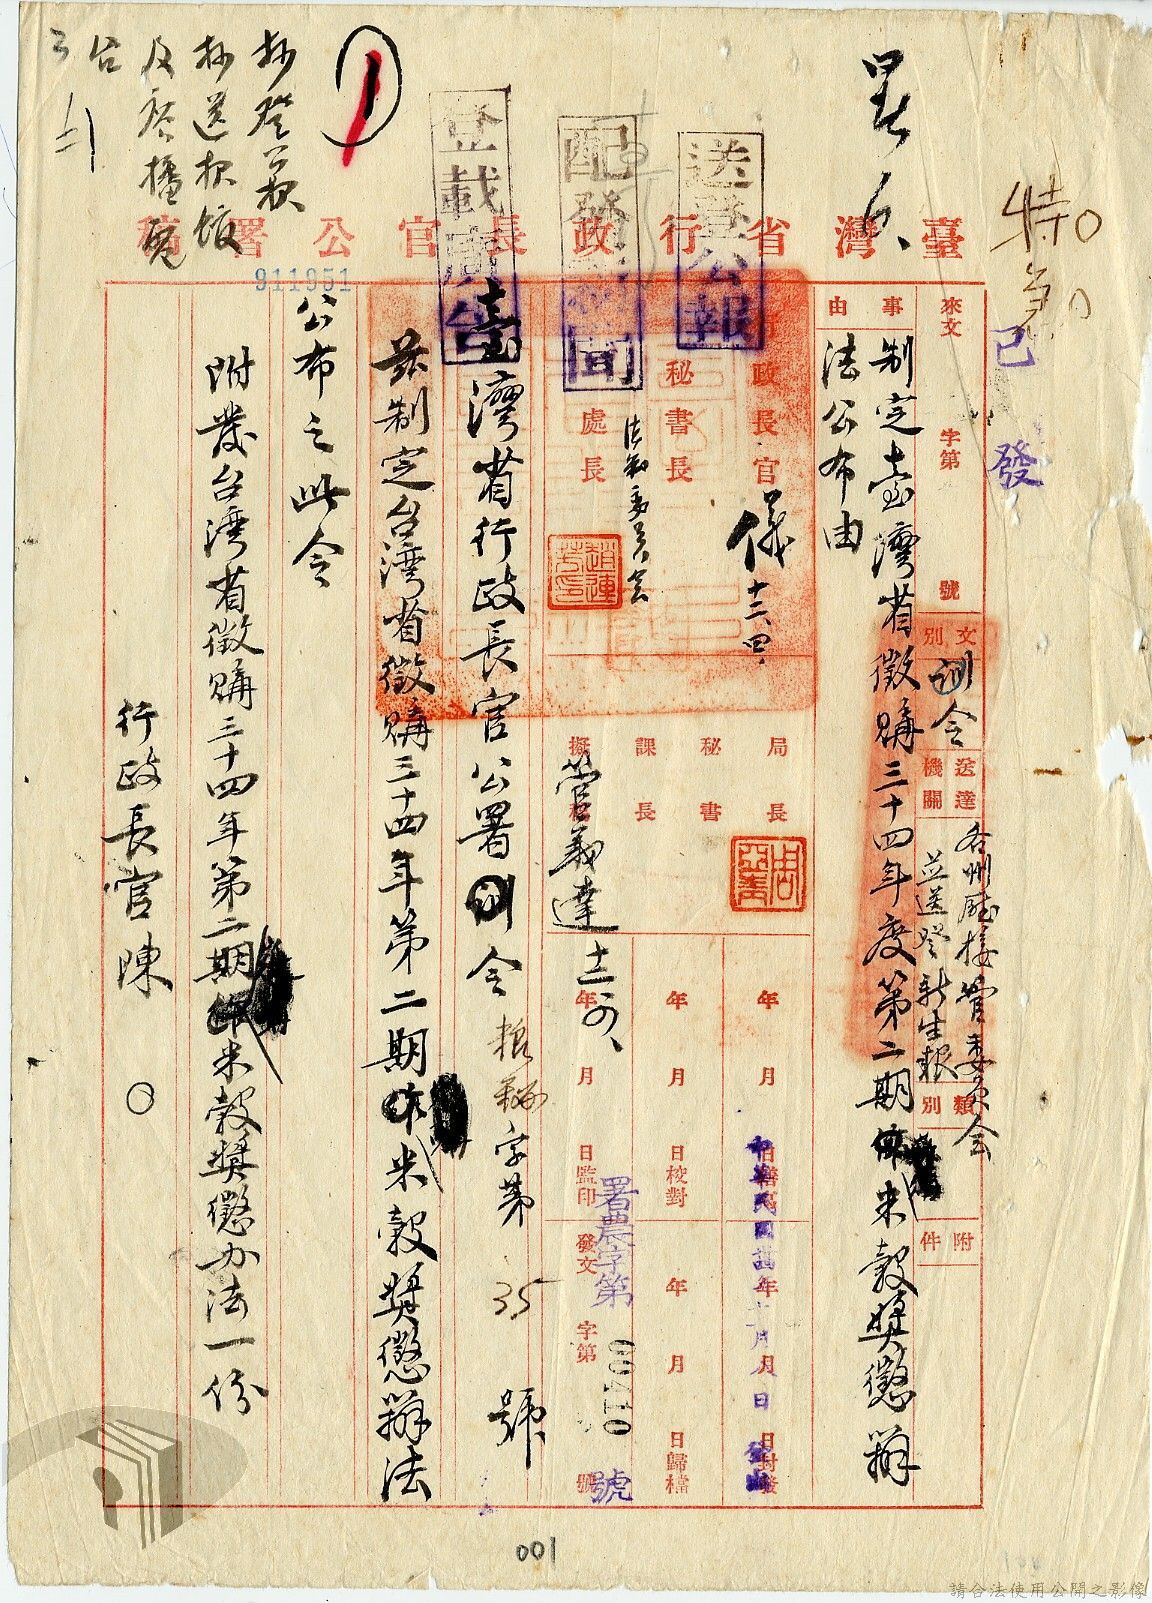 特急
已發
臺灣省行政長官公署稿
來文 字第 號
文別 訓令
送達機關 各州廳接管委員会
並送登新生報
類別
附件
事由
制定臺灣省徵購三十四年度第二期米穀獎懲辦
法公布由
送登公報
配發新聞
登載廣告
行政長官 儀 十二、四、
秘書長
處長
法制委員会
趙連芳印
局長
秘書
課長
擬稿
菅義達 十二、四、
年 月 日繕寫
年 月 日校對
年 月 日監印
年 月 日封發
年 月 日歸檔
發文 字第 號
中華民國卅四年十二月八日
署農字第 00410 號
臺灣省行政長官公署訓令 糧 字第 35 號
茲制定台灣省徵購三十四年第二期米穀獎懲辦法
公布之此令
附發台灣省徵購三十四年第二期米穀獎懲办法一份
行政長官陳〇
抄登報
抄送報館
及廣播電
台
1
911951
001
請合法使用公開之影像